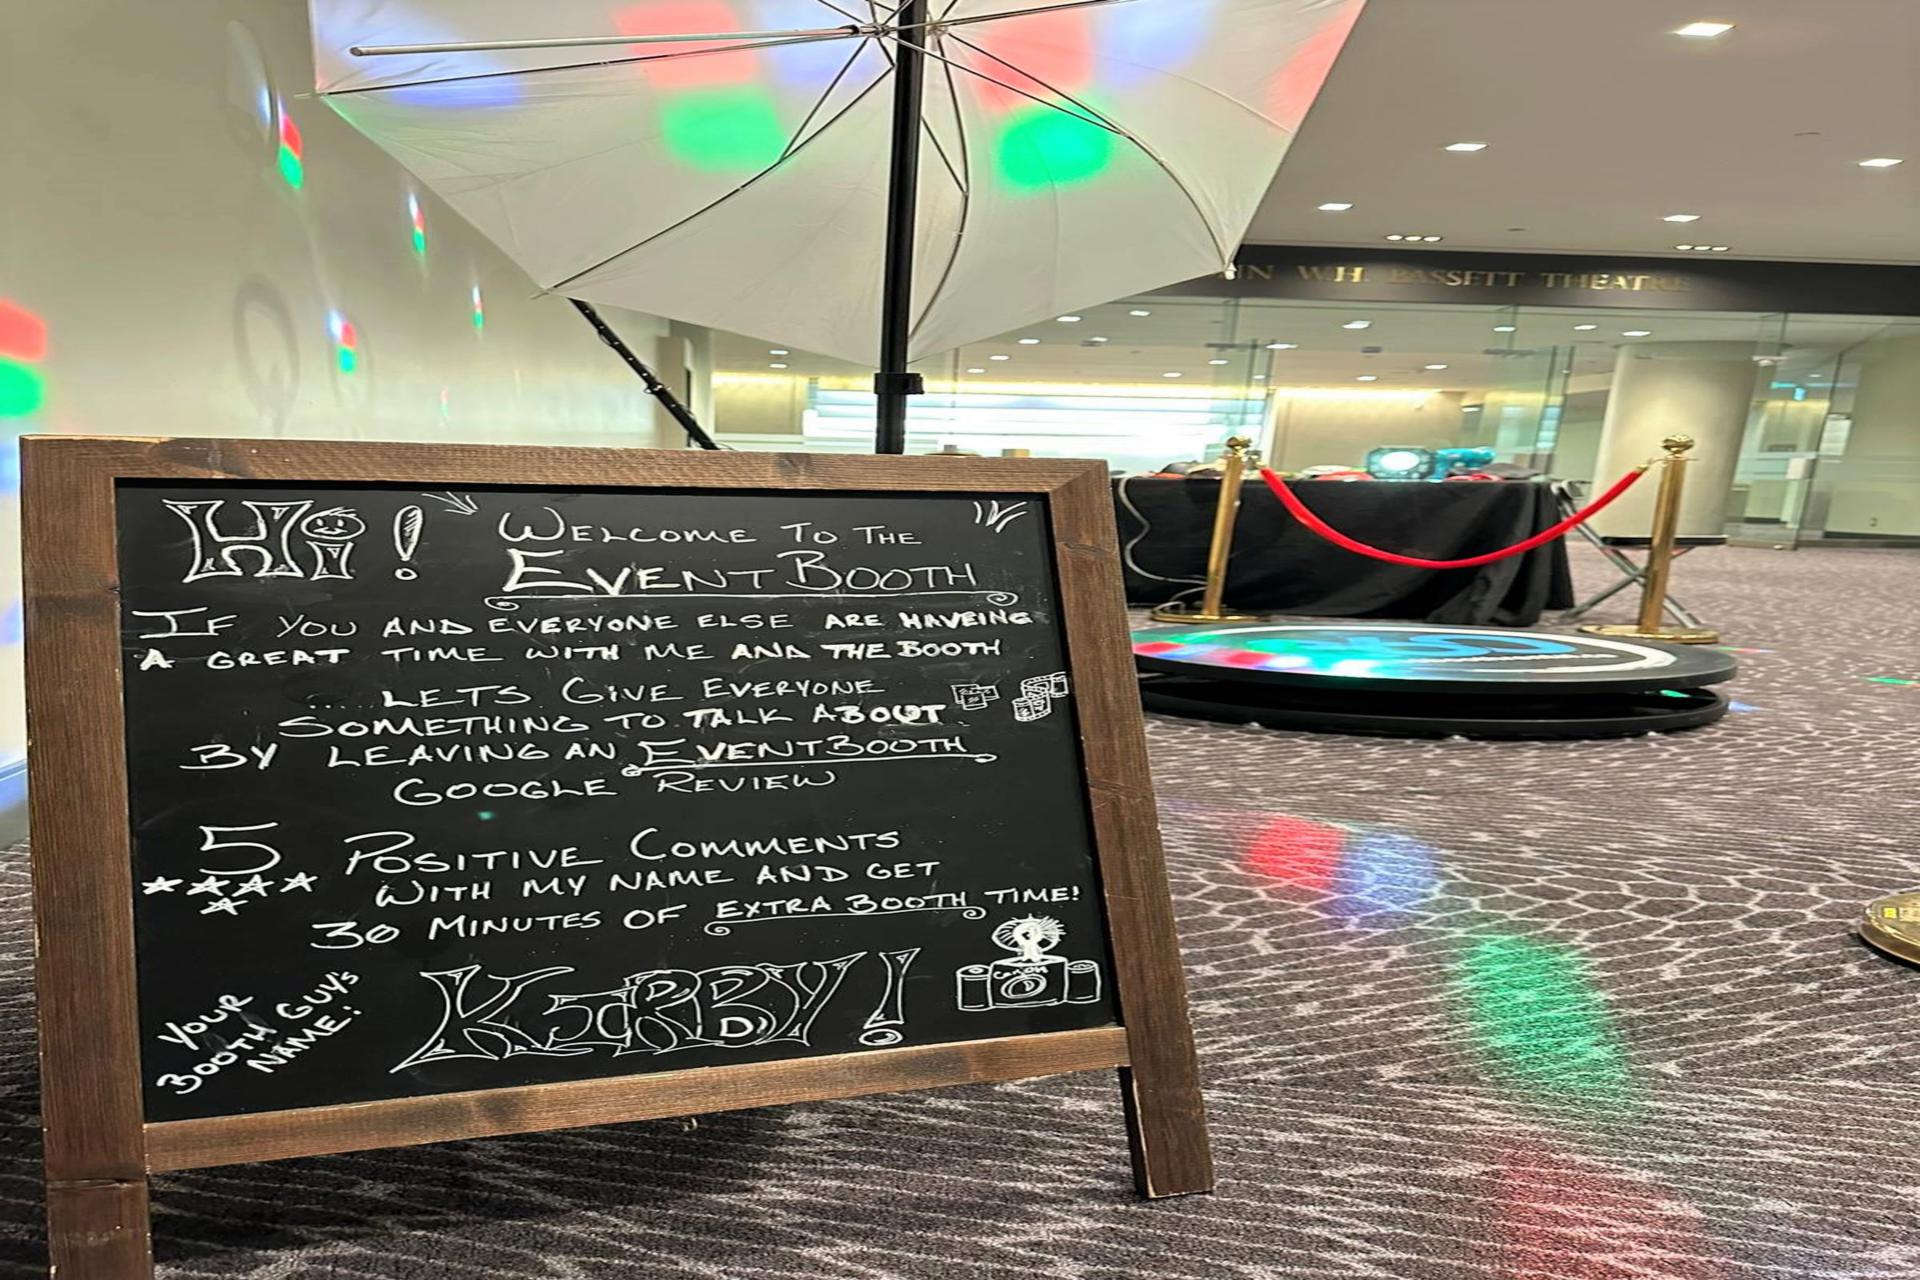 Hi!
WELCOME TO THE
EVENTBOOTH
IF YOU AND EVERYONE ELSE ARE HAVEING
A GREAT TIME WITH ME AND THE BOOTH
.... LETS GIVE EVERYONE
SOMETHING TO TALK ABOUT
BY LEAVING AN EVENTBOOTH
GOOGLE REVIEW
5 POSITIVE COMMENTS
WITH MY NAME AND GET
30 MINUTES OF EXTRA BOOTH TIME!
YOUR
BOOTH GUY'S
NAME:
KIRBY!
Canon
W.H. BASSETT THEATRE